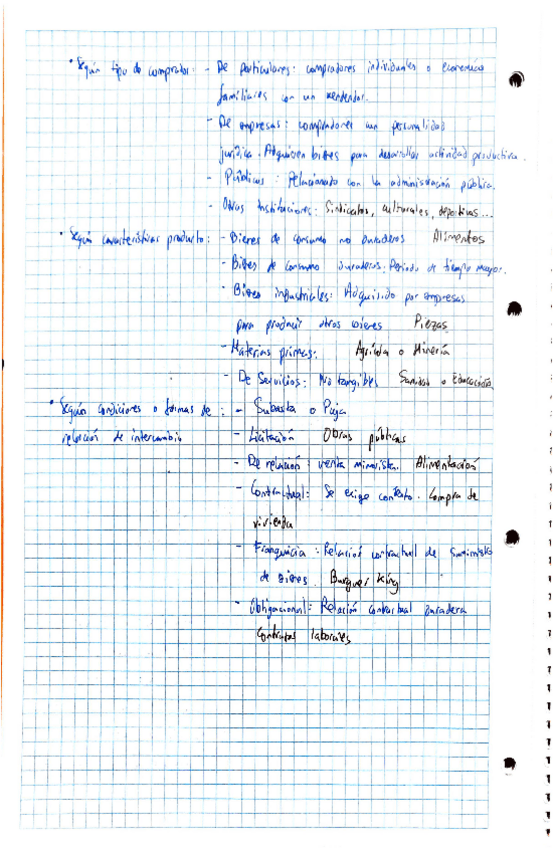 • Según tipo de comprador: - De particulares: compradores individuales o economias
familiares con un vendedor.
- De empresas: compradores con personalidad
jurídica. Adquieren bienes para desarrollar actividad productiva.
- Públicos: Relacionado con la administración pública.
- Otras Instituciones: Sindicatos, culturales, deportivas...
• Según características producto: - Bienes de consumo no duraderos Alimentos
- Bienes de consumo duraderos. Periodo de tiempo mayor.
- Bienes industriales: Adquirido por empresas
para producir otros bienes Piezas
- Materias primas: Agrícola o Minería
- De Servicios: No tangible. Sanidad o Educación
• Según condiciones o formas de : - Subasta o Puja
relación de intercambio - Licitación Obras públicas
- De relación: venta minorista. Alimentación
- Contractual: Se exige contrato. Compra de
vivienda
- Franquicia: Relación contractual de suministro
de bienes. Burguer King
- Obligacional: Relación contractual duradera
Contratos laborales